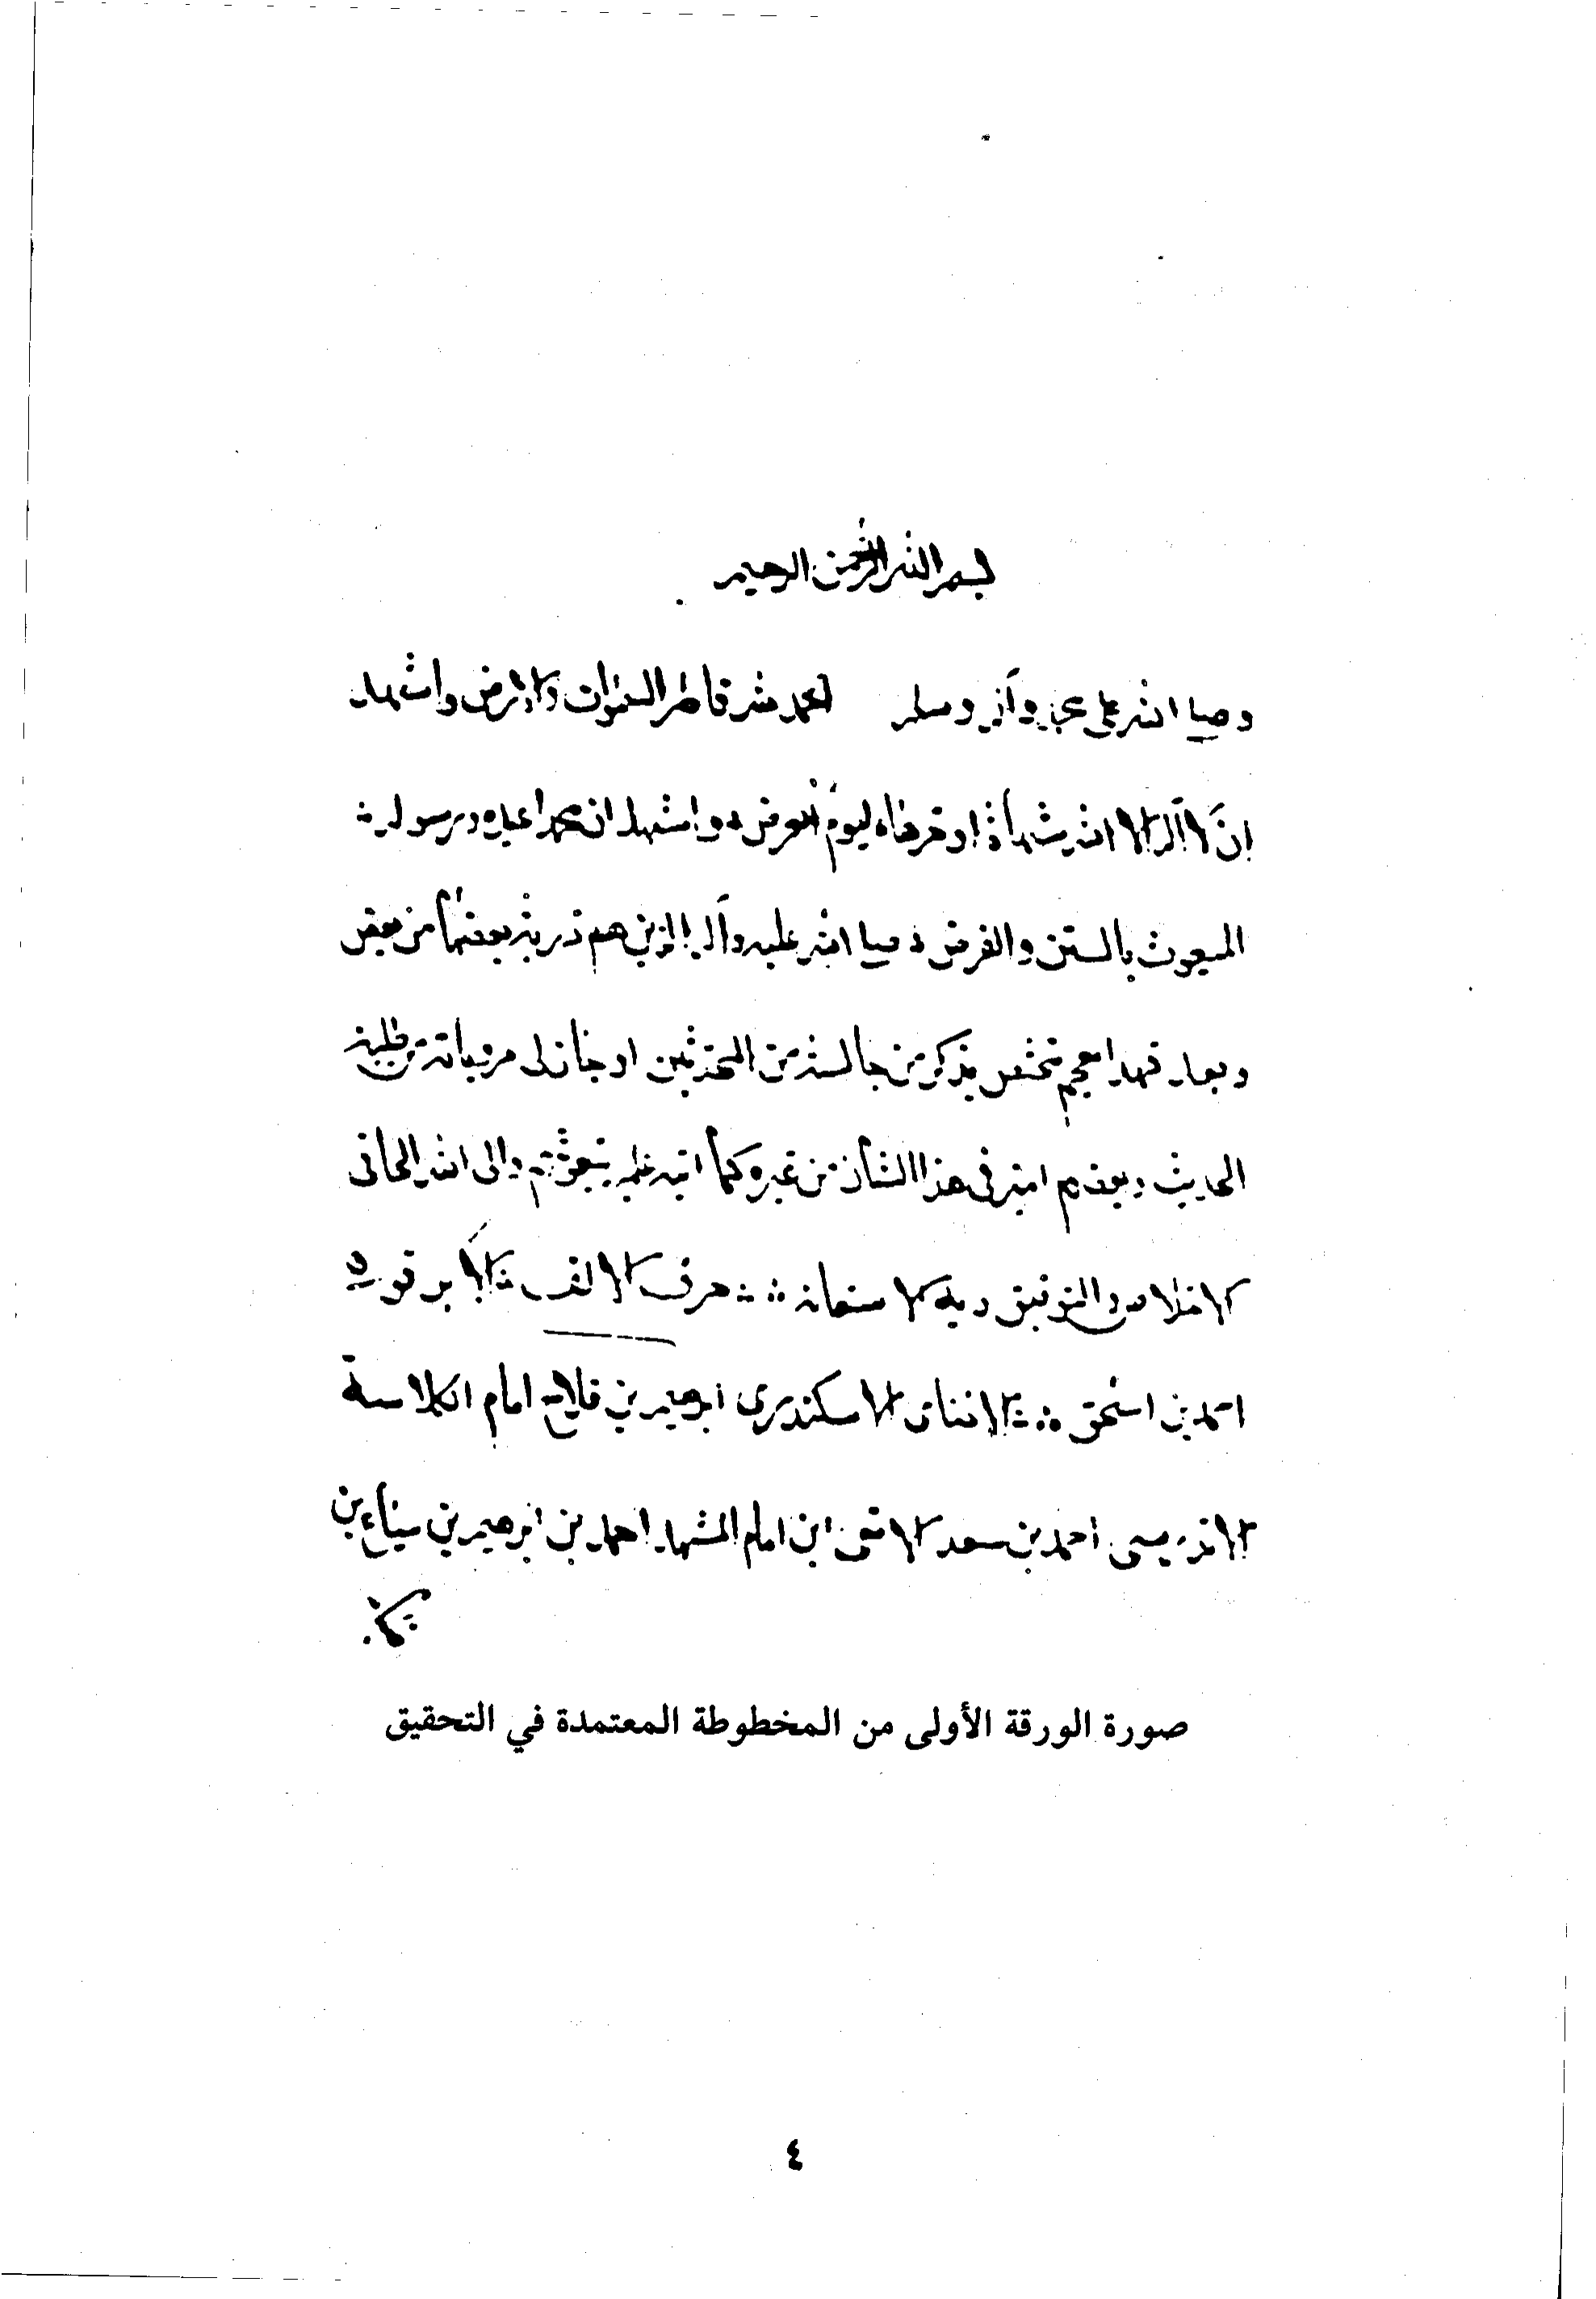 بسم الله الرحمن الرحيم
وصلى الله على محمد وآله وسلم الحمد لله فاطر السموات والارض واشهد
ان لا اله الا الله شهادة ادخرها ليوم العرض واشهد ان محمدا عبده ورسوله
المبعوث بالسنن والفرض صلى الله عليه وآله الذين هم ذرية بعضها من بعض
وبعد فهذا معجم مختص بذكر من جالسته من المحدثين او اجاز لى مروياته من طلبة
الحديث وبعضهم اميز فى هذا الشان من غيره كما انبه عليه بنعوتهم والى الله الجأ فى
الاخلاص والتوفيق وبه الاستعانة حرف الالف الابرقوهى
احمد بن اسحق الاسكندرى ابرهيم بن فلاح امام الكلاسة
احمد بن سعد ابن امام المشهد احمد بن ابرهيم بن سباع بن
صورة الورقة الأولى من المخطوطة المعتمدة في التحقيق
٤